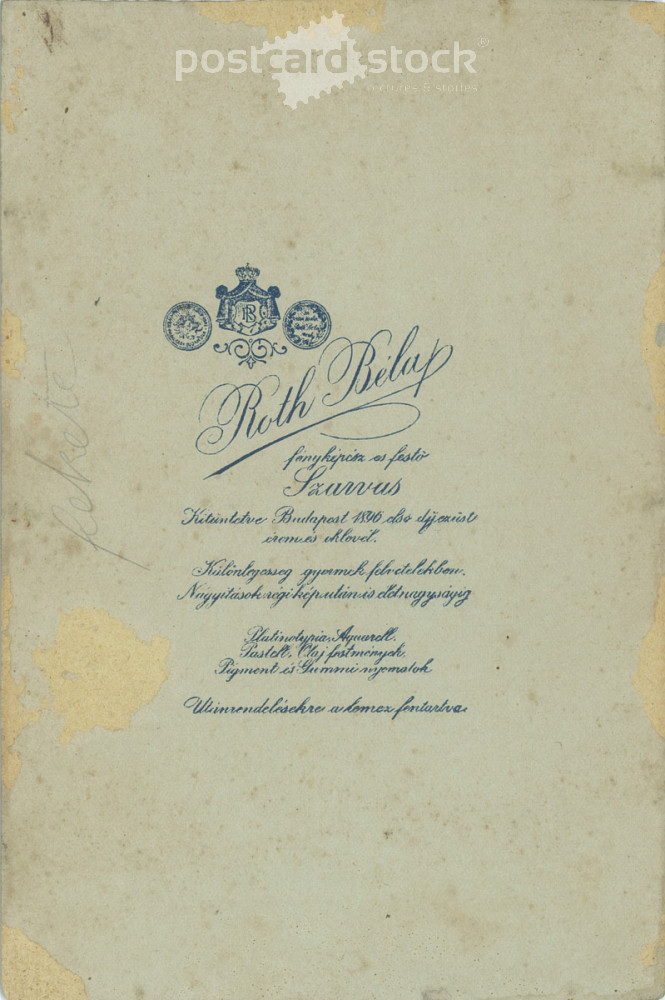 postcard stock
pictures & stories
RB
Roth Béla
fényképész es festö
Szarvas
Kitüntetve Budapest 1896 elsö díj ezüst
érem és oklevél.
Különlegesseg gyermek felvételekben.
Nagyitások régi kép után is életnagyságig
Platinotypia, Aquarell.
Pastell. Olaj festmények.
Pigment és Gummi nyomatok
Utánrendelésekre a lemez fentartva
fekete